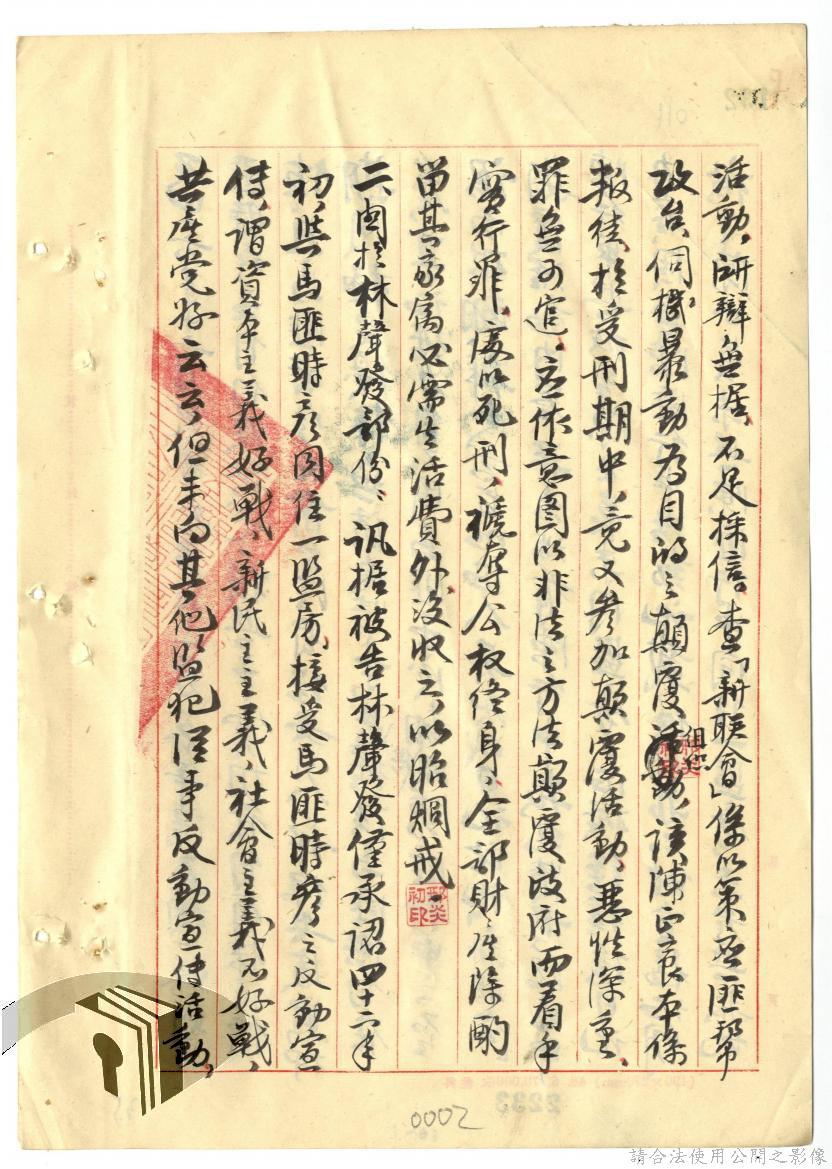 活動，所辯無據，不足採信，查「新联會」係以策应匪幫
攻台，伺機暴動為目的之顛覆組織，該陳正宸本係
叛徒，於受刑期中，竟又參加顛覆活動，惡性深重，
罪無可逭，应依意图以非法之方法顛覆政府而着手
實行罪，處以死刑，褫奪公权終身，全部財產除酌
留其家屬必需生活費外，没收之，以昭烱戒。
二、関於林聲發部份：訊据被告林聲發僅承認四十二年
初，與馬匪時彥同住一監房，接受馬匪時彥之反動宣
傳，謂資本主義好戰，新民主主義，社會主義不好戰，
共產党好云云，但未向其他監犯從事反動宣傳活動，
鄭炎初印
0002
2233
011
請合法使用公開之影像